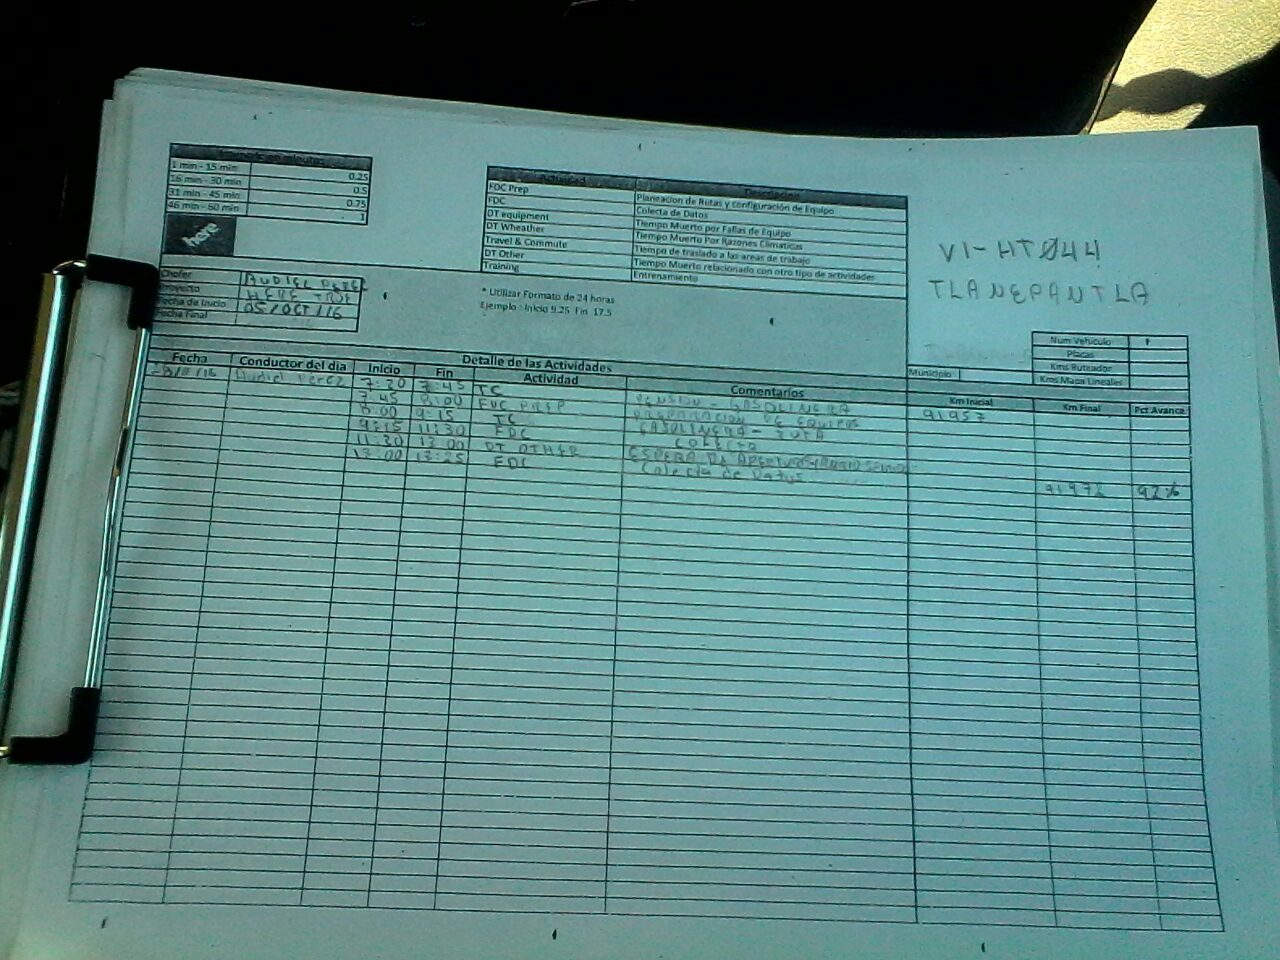 1 min - 15 min 0.25
16 min - 30 min 0.5
31 min - 45 min 0.75
46 min - 60 min 1
here
Actividad Descripcion
FDC Prep Planeacion de Rutas y configuración de Equipo
FDC Colecta de Datos
DT equipment Tiempo Muerto por Fallas de Equipo
DT Wheather Tiempo Muerto Por Razones Climaticas
Travel & Commute Tiempo de traslado a las areas de trabajo
DT Other Tiempo Muerto relacionado con otro tipo de actividades
Training Entrenamiento
VI-HTØ44
TLANEPANTLA
Chofer AUDIEL PEREZ
Proyecto HERE TRUE
Fecha de Inicio 05/OCT/16
Fecha Final
* Utilizar Formato de 24 horas
Ejemplo : Inicio 9.25 Fin 17.5
Num Vehiculo
Placas
Kms Ruteador
Kms Mapa Lineales
Municipio
Detalle de las Actividades
Fecha Conductor del dia Inicio Fin Actividad Comentarios Km Inicial Km Final Pct Avance
Audiel Perez 7:20 7:45 TC PENSION - GASOLINERA 91957
7:45 8:00 FDC PREP PREPARACION DE EQUIPOS
8:00 9:15 TC GASOLINERA - RUTA
9:15 11:30 FDC COLECTA
11:30 13:00 DT OTHER ESPERA DE
13:00 13:25 FDC Colecta de Datos
91972 92%